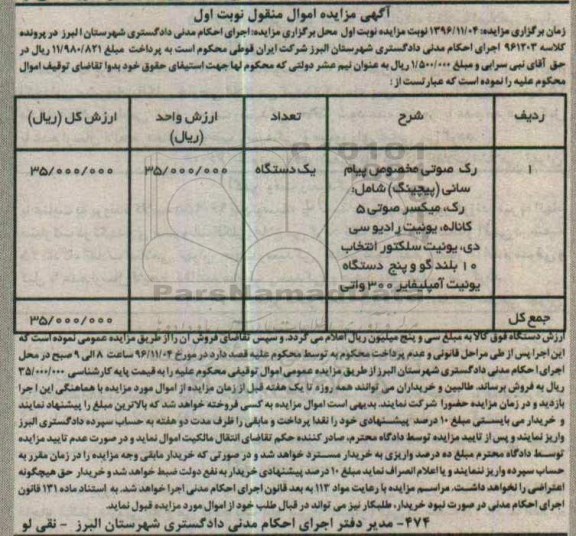 آگهی مزایده اموال منقول نوبت اول
زمان برگزاری مزایده: ۱۳۹۶/۱۱/۰۴ نوبت مزایده نوبت اول محل برگزاری مزایده: اجرای احکام مدنی دادگستری شهرستان البرز در پرونده
کلاسه ۹۶۱۲۰۳ اجرای احکام مدنی دادگستری شهرستان البرز شرکت ایران قوطی محکوم است به پرداخت مبلغ ۱۱/۹۸۰/۸۲۱ ریال در
حق آقای نبی سرابی و مبلغ ۱/۵۰۰/۰۰۰ ریال به عنوان نیم عشر دولتی که محکوم لها جهت استیفای حقوق خود بدوا تقاضای توقیف اموال
محکوم علیه را نموده است که عبارتست از:
ردیف شرح تعداد ارزش واحد (ریال) ارزش کل (ریال)
۱ رک صوتی مخصوص پیام یک دستگاه ۳۵/۰۰۰/۰۰۰ ۳۵/۰۰۰/۰۰۰
سانی (پیجینگ) شامل:
رک، میکسر صوتی ۵
کاناله، یونیت رادیو سی
دی، یونیت سلکتور انتخاب
۱۰ بلندگو و پنج دستگاه
یونیت آمپلیفایر ۳۰۰ واتی
جمع کل ۳۵/۰۰۰/۰۰۰
ParsNamadData
ارزش دستگاه فوق کالا به مبلغ سی و پنج میلیون ریال اعلام می گردد. و سپس تقاضای فروش آن را از طریق مزایده عمومی نموده است که
این اجرا پس از طی مراحل قانونی و عدم پرداخت محکوم به توسط محکوم علیه قصد دارد در مورخ ۹۶/۱۱/۰۴ ساعت ۸ الی ۹ صبح در محل
اجرای احکام مدنی دادگستری شهرستان البرز از طریق مزایده عمومی اموال توقیفی محکوم علیه را به قیمت پایه کارشناسی ۳۵/۰۰۰/۰۰۰
ریال به فروش برساند. طالبین و خریداران می توانند همه روزه تا یک هفته قبل از زمان مزایده از اموال مورد مزایده با هماهنگی این اجرا
بازدید و در زمان مزایده حضورا شرکت نمایند. بدیهی است اموال مزایده به کسی فروخته خواهد شد که بالاترین مبلغ را پیشنهاد نمایند
و خریدار می بایستی مبلغ ۱۰ درصد پیشنهادی خود را نقدا پرداخت و مابقی را ظرف مدت دو هفته به حساب سپرده دادگستری البرز
واریز نمایند و پس از تایید مزایده توسط دادگاه محترم، صادر کننده حکم تقاضای انتقال مالکیت اموال نماید و در صورت عدم تایید مزایده
توسط دادگاه محترم مبلغ ده درصد واریزی به خریدار مسترد خواهد شد و در صورتی که خریدار مابقی وجه مزایده را در زمان مقرر به
حساب سپرده واریز ننمایند و یا اعلام انصراف نماید مبلغ ۱۰ درصد پیشنهادی خریدار به نفع دولت ضبط خواهد شد و خریدار حق هیچگونه
اعتراضی را نخواهد داشت. مراسم مزایده با رعایت مواد ۱۱۳ به بعد قانون اجرای احکام مدنی اجرا خواهد شد. به استناد ماده ۱۳۱ قانون
اجرای احکام مدنی در صورت نبود خریدار، طلبکار نیز می تواند در قبال طلب خود از اموال مورد مزایده قبول نماید.
۴۷۴- مدیر دفتر اجرای احکام مدنی دادگستری شهرستان البرز - نقی لو